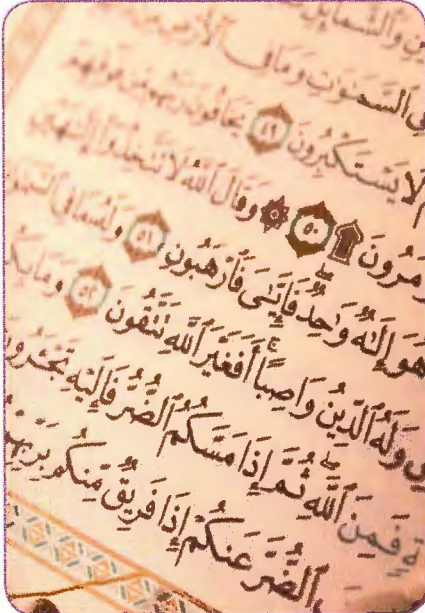 وَٱلشَّمَآئِلِ
ٱلسَّمَٰوَٰتِ وَمَا فِى ٱلْأَرْضِ
لَا يَسْتَكْبِرُونَ ٤٩ يَخَافُونَ رَبَّهُم مِّن فَوْقِهِمْ
۩ ٥٠ ۞ وَقَالَ ٱللَّهُ لَا تَتَّخِذُوٓا۟ إِلَٰهَيْنِ
هُوَ إِلَٰهٌ وَٰحِدٌ فَإِيَّٰىَ فَٱرْهَبُونِ ٥١ وَلَهُۥ مَا فِى
وَلَهُ ٱلدِّينُ وَاصِبًا أَفَغَيْرَ ٱللَّهِ تَتَّقُونَ ٥٢ وَمَا
فَمِنَ ٱللَّهِ ثُمَّ إِذَا مَسَّكُمُ ٱلضُّرُّ فَإِلَيْهِ تَجْـَٔرُونَ
ٱلضُّرَّ عَنكُمْ إِذَا فَرِيقٌ مِّنكُم بِرَبِّهِمْ